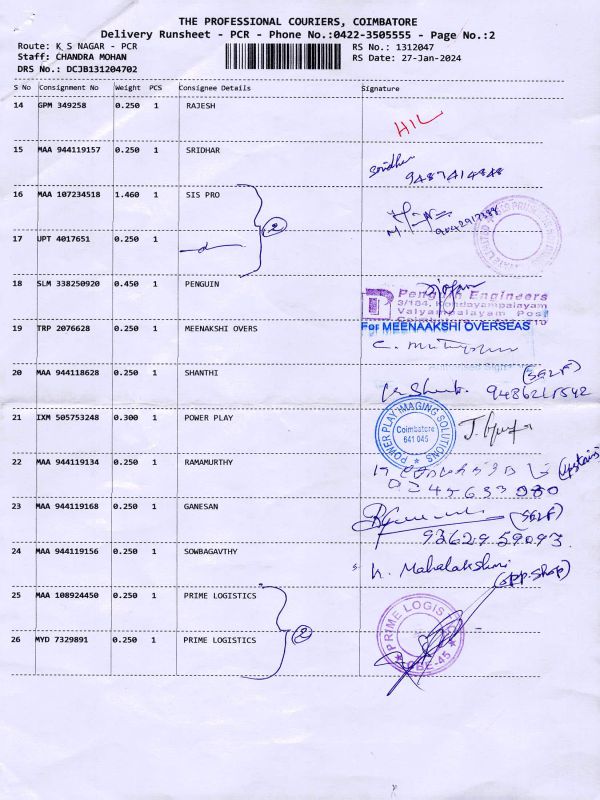 THE PROFESSIONAL COURIERS, COIMBATORE
Delivery Runsheet - PCR - Phone No.:0422-3505555 - Page No.:2
Route: K S NAGAR - PCR
RS No.: 1312047
Staff: CHANDRA MOHAN
RS Date: 27-Jan-2024
DRS No.: DCJB131204702
S No Consignment No Weight PCS Consignee Details Signature
14 GPM 349258 0.250 1 RAJESH
HIL
15 MAA 944119157 0.250 1 SRIDHAR
Sridhar
9487414848
16 MAA 107234518 1.460 1 SIS PRO
2
17 UPT 4017651 0.250 1
18 SLM 338250920 0.450 1 PENGUIN
Penguin Engineers
3/184, Kondayampalayam
Valyampalayam Post
19 TRP 2076628 0.250 1 MEENAKSHI OVERS
For MEENAAKSHI OVERSEAS
20 MAA 944118628 0.250 1 SHANTHI
(SELF)
21 IXM 505753248 0.300 1 POWER PLAY
POWER PLAY IMAGING SOLUTIONS
Coimbatore
641 045
22 MAA 944119134 0.250 1 RAMAMURTHY
(upstairs)
23 MAA 944119168 0.250 1 GANESAN
(SELF)
9362959093
24 MAA 944119156 0.250 1 SOWBAGAVTHY
K. Mahalakshmi
(opp. shop)
25 MAA 108924450 0.250 1 PRIME LOGISTICS
2
PRIME LOGIS
CBE-45
26 MYD 7329891 0.250 1 PRIME LOGISTICS